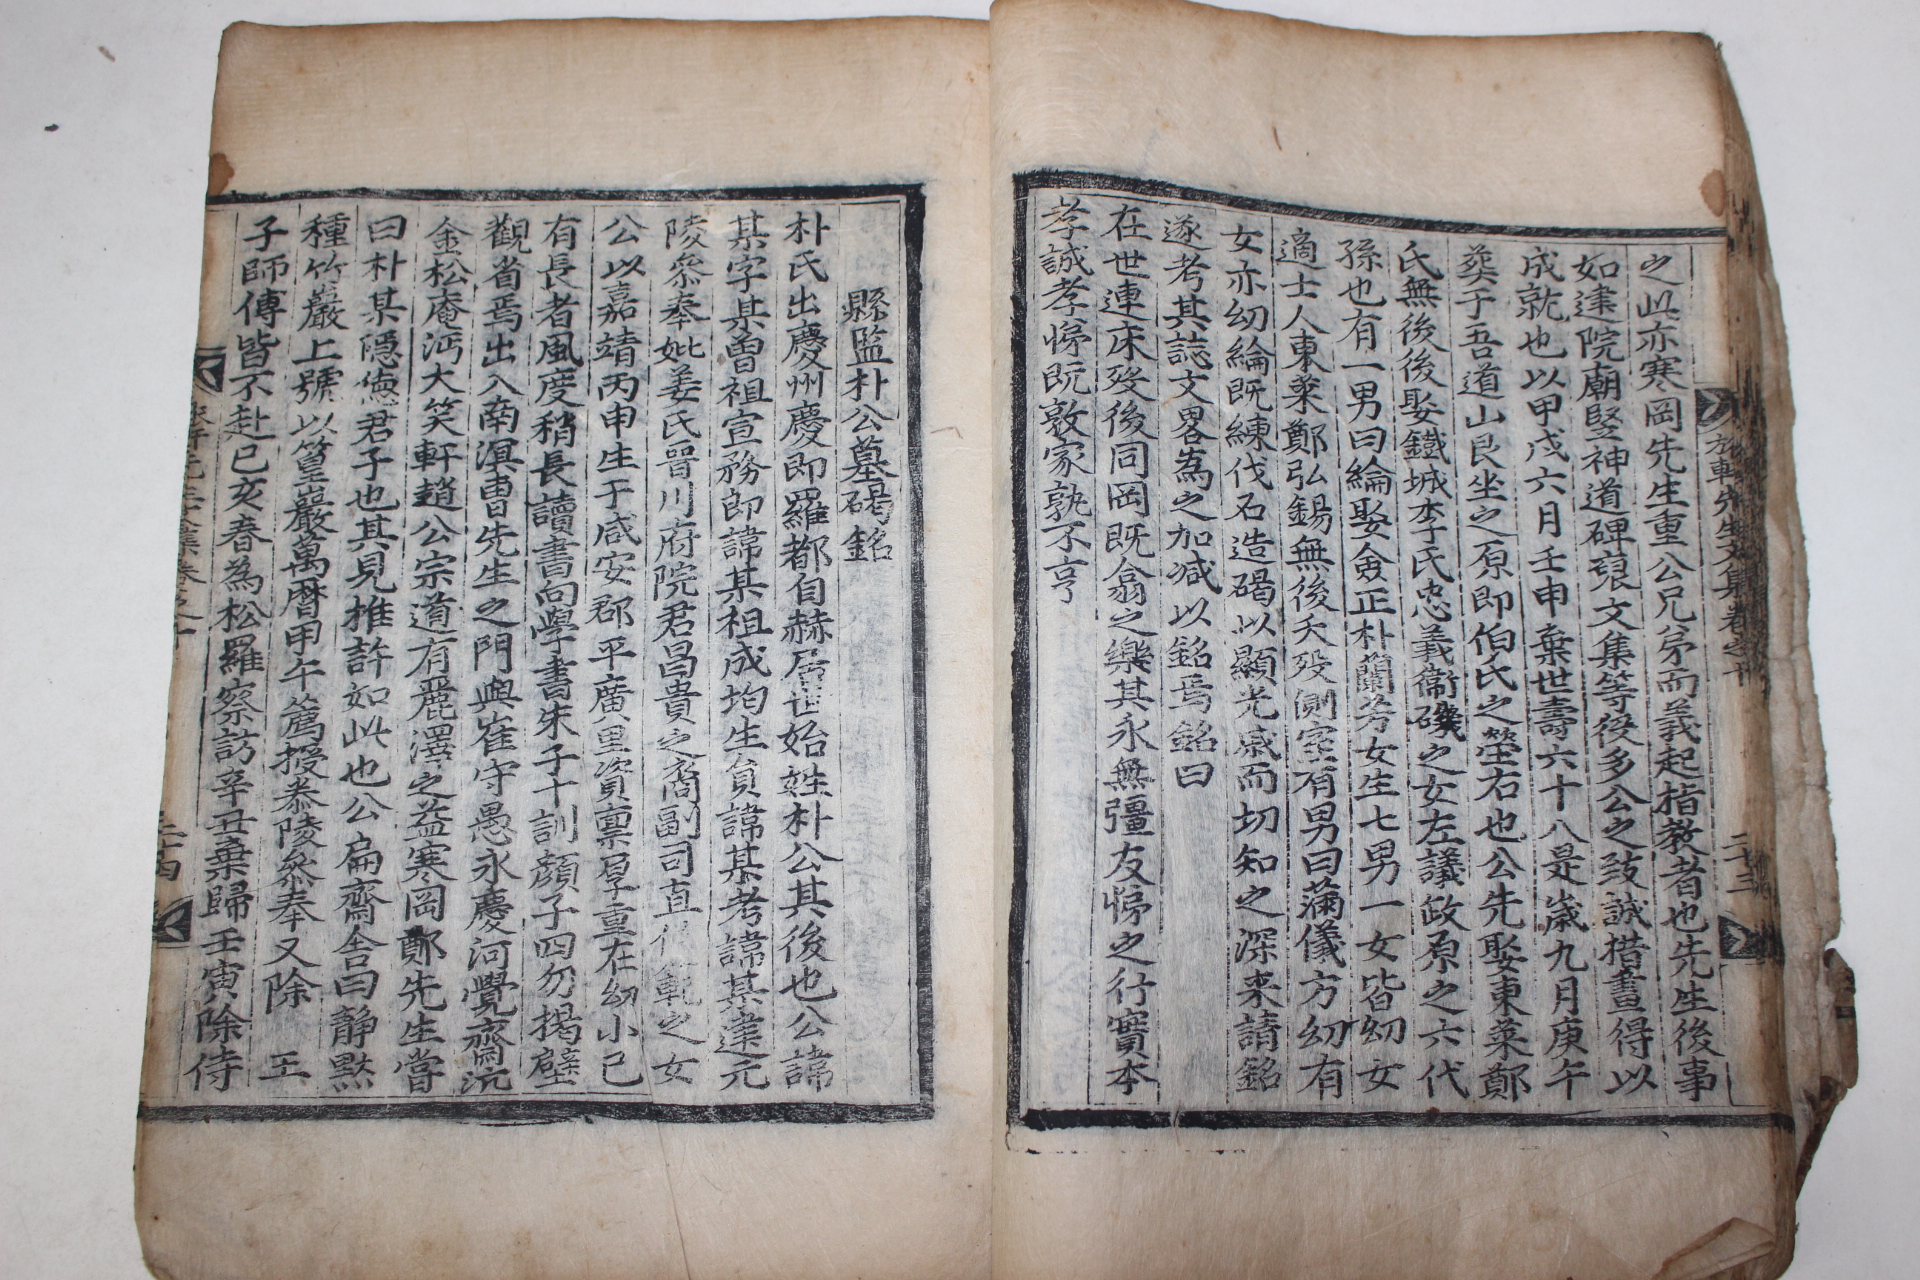 之此亦寒岡先生重公兄弟而義起指教者也先生後事
如建院廟竪神道碑裒文集等役多公之致誠措畫得以
成就也以甲戌六月壬申棄世壽六十八是歲九月庚午
葬于吾道山艮坐之原即伯氏之塋右也公先娶東萊鄭
氏無後後娶鐵城李氏忠義衛磯之女左議政原之六代
孫也有一男曰綸娶僉正朴蘭芳女生七男一女皆幼女
適士人東萊鄭弘錫無後夭歿側室有男曰滿儀方幼有
女亦幼綸既練伐石造碣以顯光慼而切知之深来請銘
遂考其誌文畧爲之加减以銘焉銘曰
在世連床歿後同岡既翕之樂其永無彊友悌之行實本
孝誠孝悌既敦家孰不亨
先生文集卷之十
二十三
縣監朴公墓碣銘
朴氏出慶州慶即羅都自赫居世始姓朴公其後也公諱
某字某曾祖宣務郎諱某祖成均生員諱某考諱某達元
陵叅奉妣姜氏晉川府院君昌貴之裔副司直之女
公以嘉靖丙申生于咸安郡平廣里資稟厚重在幼小已
有長者風度稍長讀書向學書朱子十訓顔子四勿揭壁
觀省焉出入南溟曺先生之門與崔守愚永慶河覺齋沆
金松庵沔大笑軒趙公宗道有麗澤之益寒岡鄭先生嘗
曰朴某隱德君子也其見推許如此也公扁齋舍曰靜默
種竹巖上號以篁巖萬曆甲午薦授泰陵叅奉又除 王
子師傅皆不赴己亥春爲松羅察訪辛丑棄歸壬寅除侍